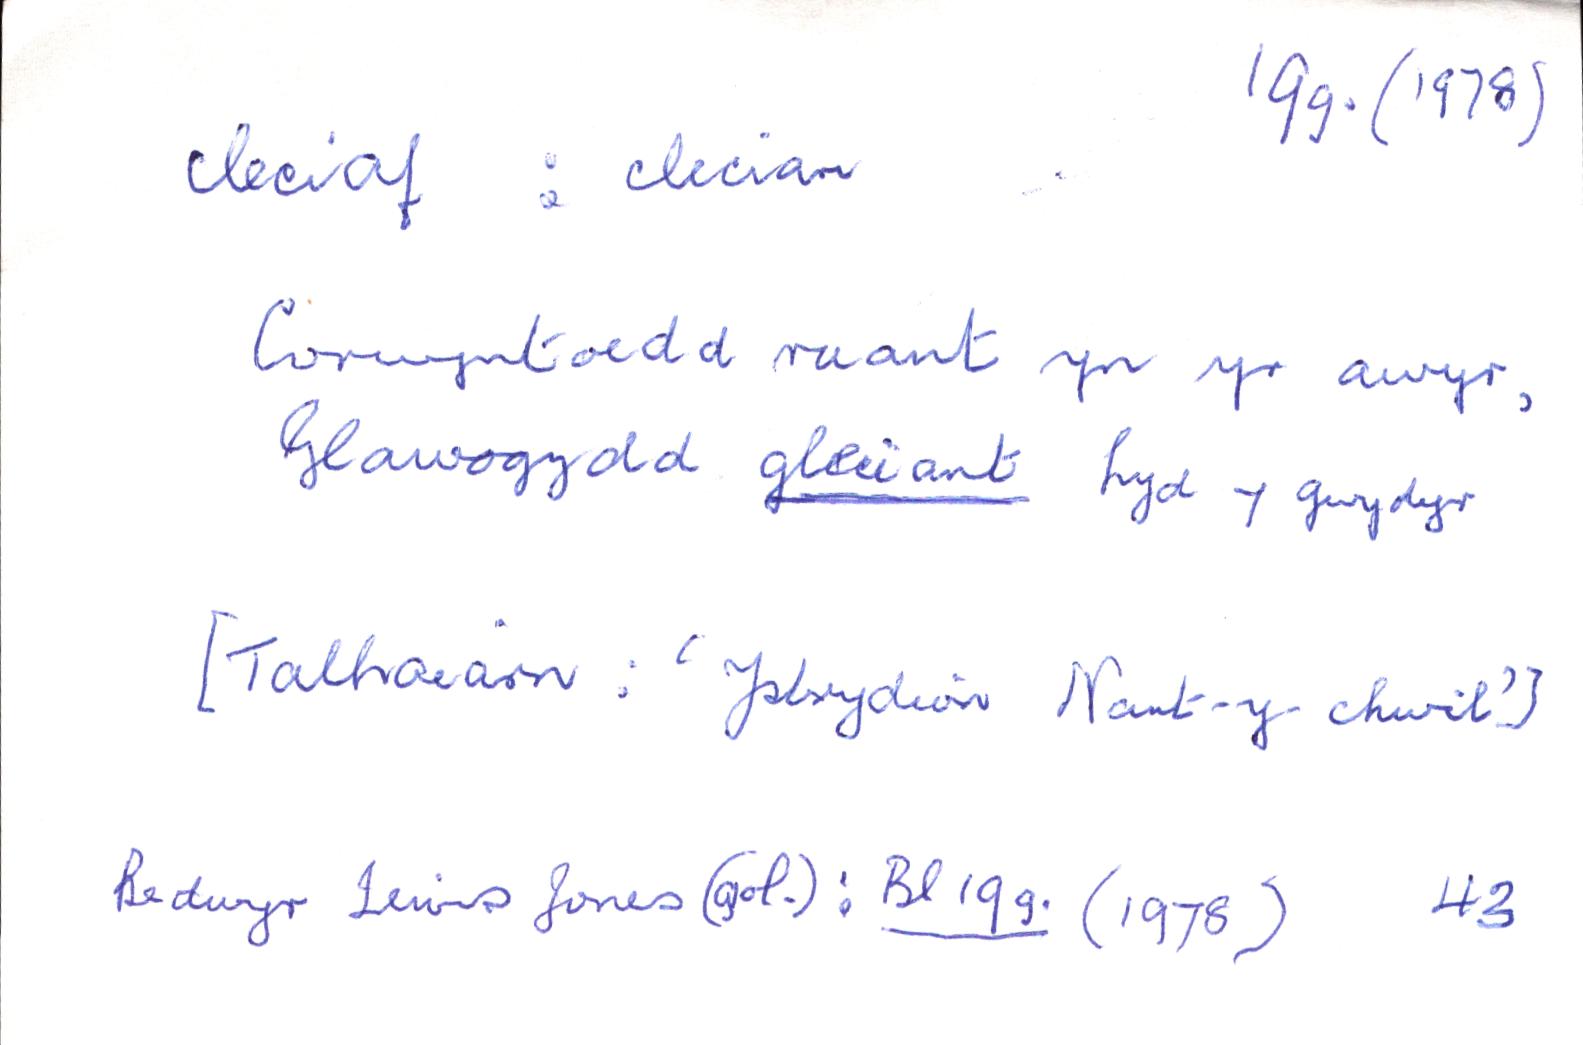 19g. (1978)
cleciaf : clecian
Corwyntoedd ruant yn yr awyr,
Glawogydd gleciant hyd y gwydyr
[Talhaiarn : 'Ysbrydion Nant-y-chwil']
Bedwyr Lewis Jones (gol.) : Bl 19g. (1978) 43